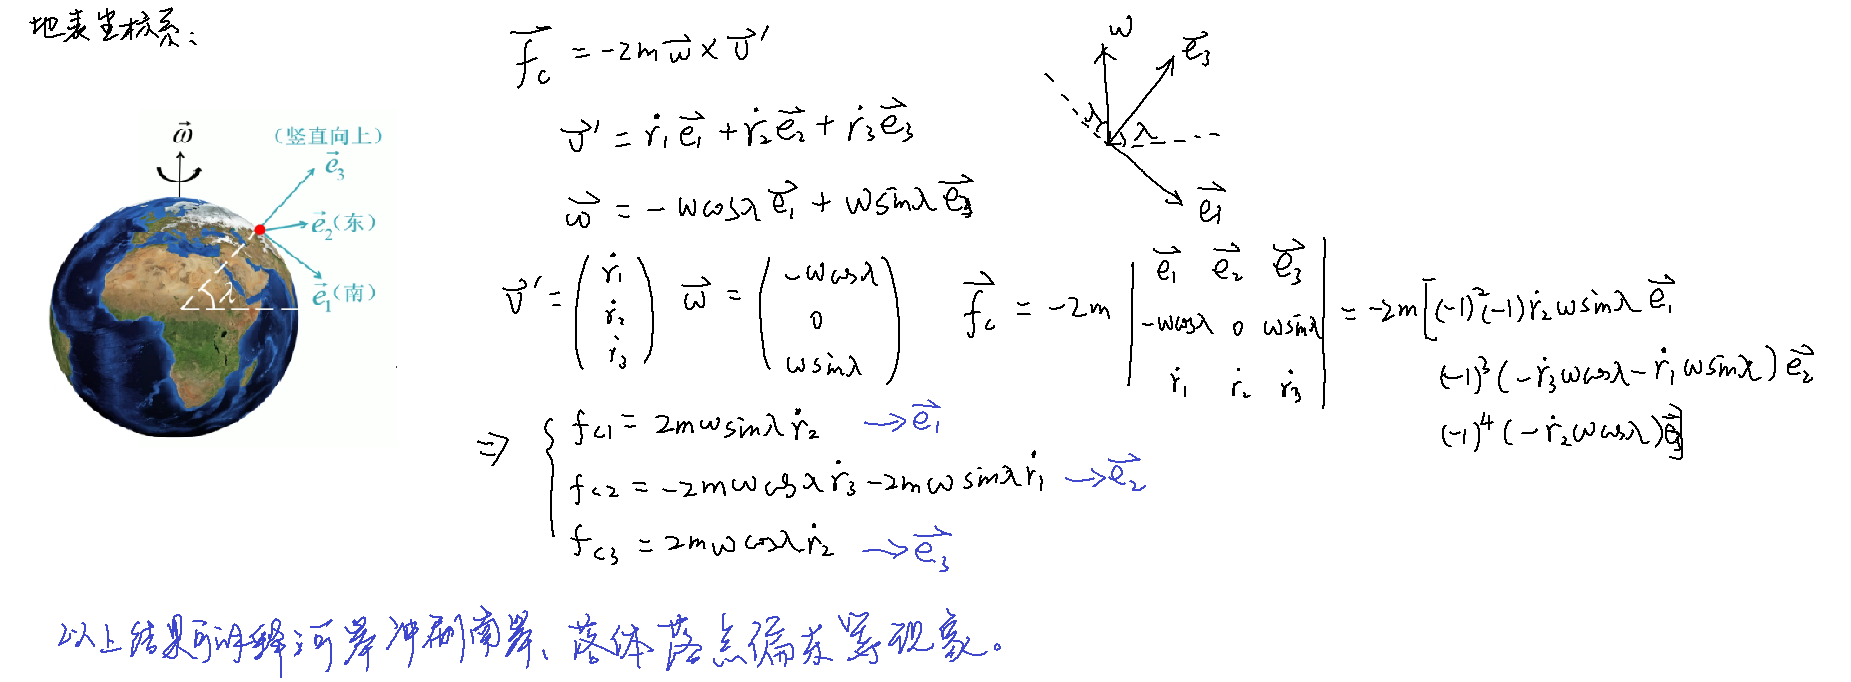 地表坐标系:
$\vec{f_c} = -2m\vec{\omega} \times \vec{v}'$
$\vec{v}' = \dot{r}_1\vec{e_1} + \dot{r}_2\vec{e_2} + \dot{r}_3\vec{e_3}$
$\vec{\omega} = -\omega\cos\lambda\vec{e_1} + \omega\sin\lambda\vec{e_3}$
$\vec{v}' = \begin{pmatrix} \dot{r}_1 \\ \dot{r}_2 \\ \dot{r}_3 \end{pmatrix}$ $\vec{\omega} = \begin{pmatrix} -\omega\cos\lambda \\ 0 \\ \omega\sin\lambda \end{pmatrix}$
$\vec{f_c} = -2m \begin{vmatrix} \vec{e_1} & \vec{e_2} & \vec{e_3} \\ -\omega\cos\lambda & 0 & \omega\sin\lambda \\ \dot{r}_1 & \dot{r}_2 & \dot{r}_3 \end{vmatrix} = -2m[(-1)^2(-1)\dot{r}_2\omega\sin\lambda\vec{e_1}$
$(-1)^3(-\dot{r}_3\omega\cos\lambda - \dot{r}_1\omega\sin\lambda)\vec{e_2}$
$(-1)^4(-\dot{r}_2\omega\cos\lambda)\vec{e_3}]$
$\Rightarrow \{ f_{c1} = 2m\omega\sin\lambda\dot{r}_2 \rightarrow \vec{e_1}$
$f_{c2} = -2m\omega\cos\lambda\dot{r}_3 - 2m\omega\sin\lambda\dot{r}_1 \rightarrow \vec{e_2}$
$f_{c3} = 2m\omega\cos\lambda\dot{r}_2 \rightarrow \vec{e_3}$
$\vec{\omega}$
(竖直向上)
$\vec{e}_3$
$\vec{e}_2$(东)
$\vec{e}_1$(南)
λ
ω
$\vec{e_3}$
λ λ
$\vec{e_1}$
以上结果可解释河岸冲刷南岸、落体落点偏东等现象。